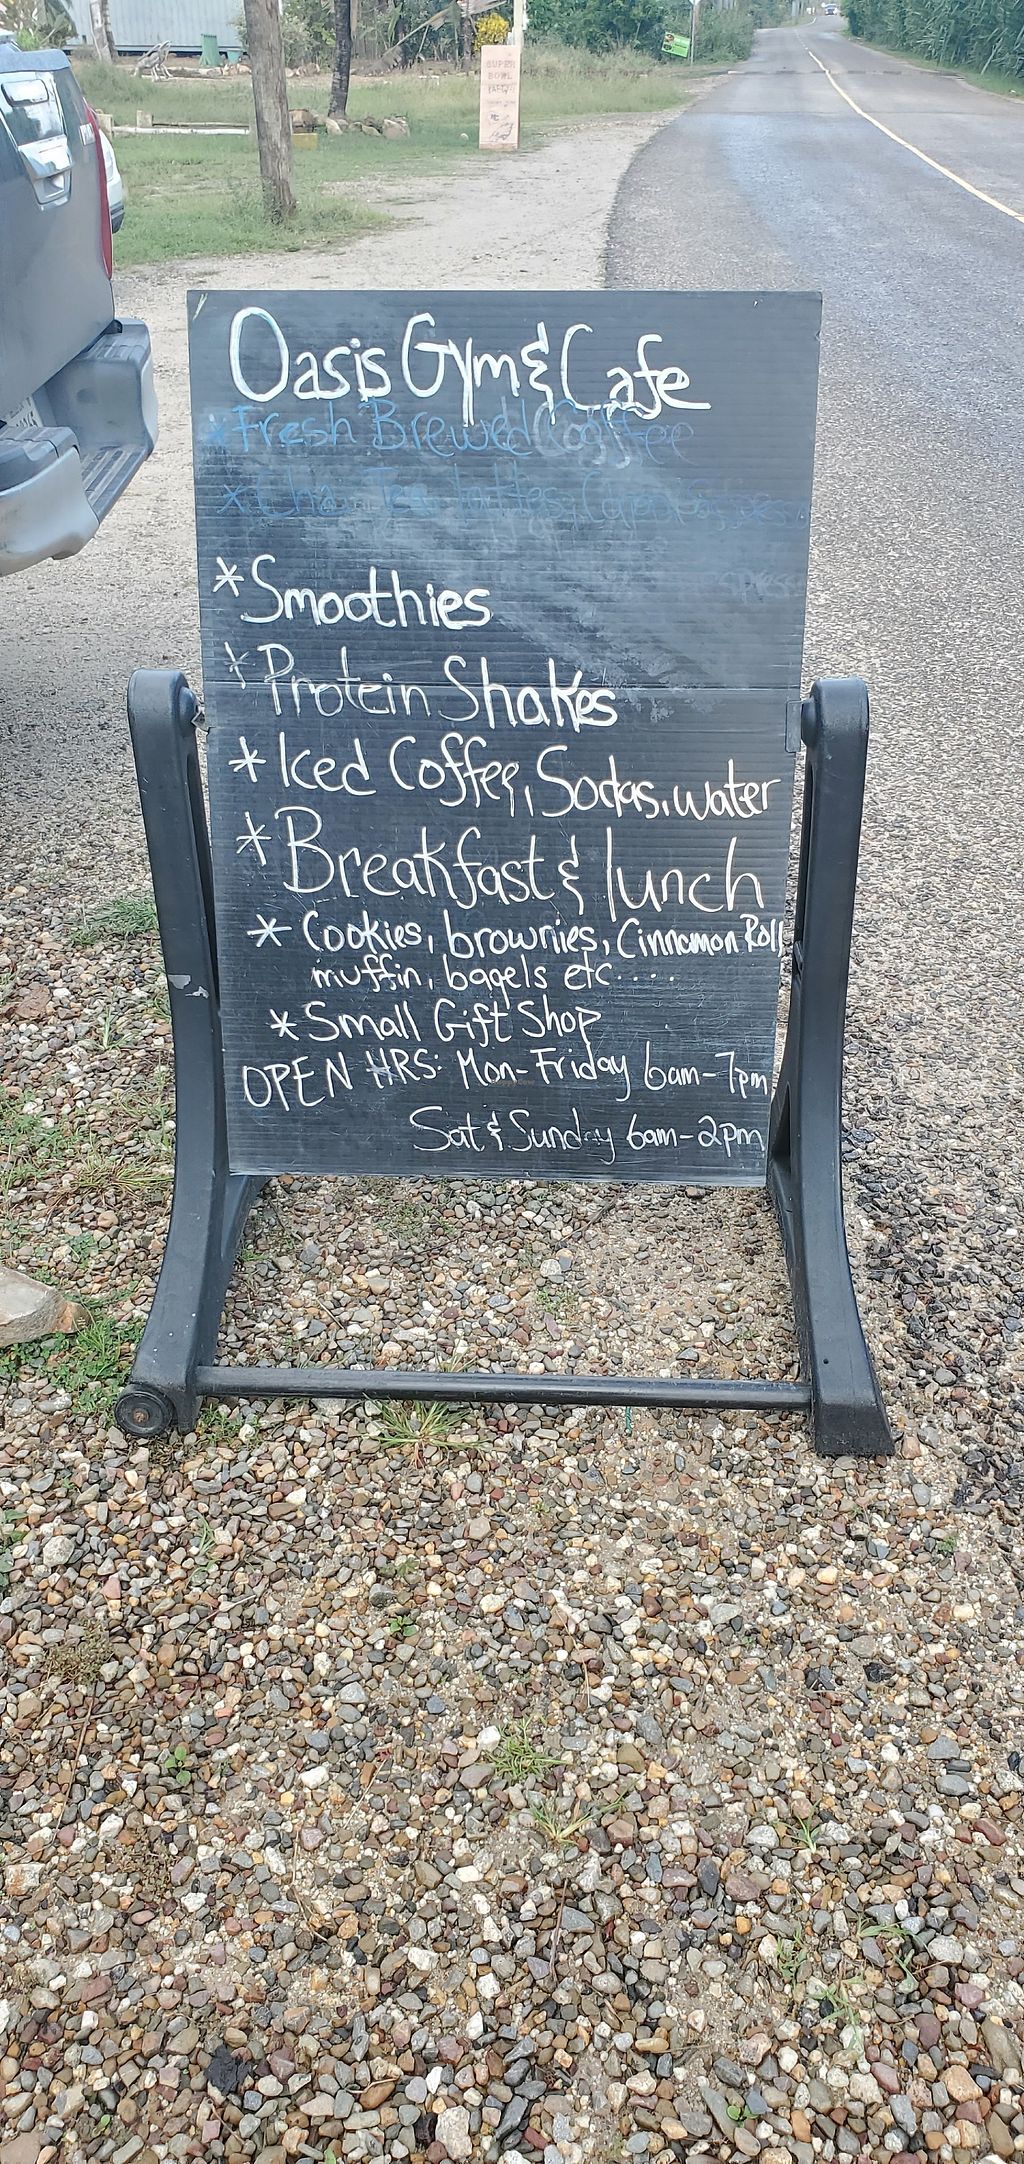 SUPER
BOWL
PARTY!!
Oasis Gym & Cafe
* Fresh Brewed Coffee
* Chai Tea, lattes,
* Smoothies
* Protein Shakes
* Iced Coffee, Sodas, water
* Breakfast & lunch
* Cookies, brownies, Cinnamon Roll,
muffin, bagels etc....
* Small Gift Shop
OPEN HRS: Mon-Friday 6am-7pm
Sat & Sunday 6am-2pm